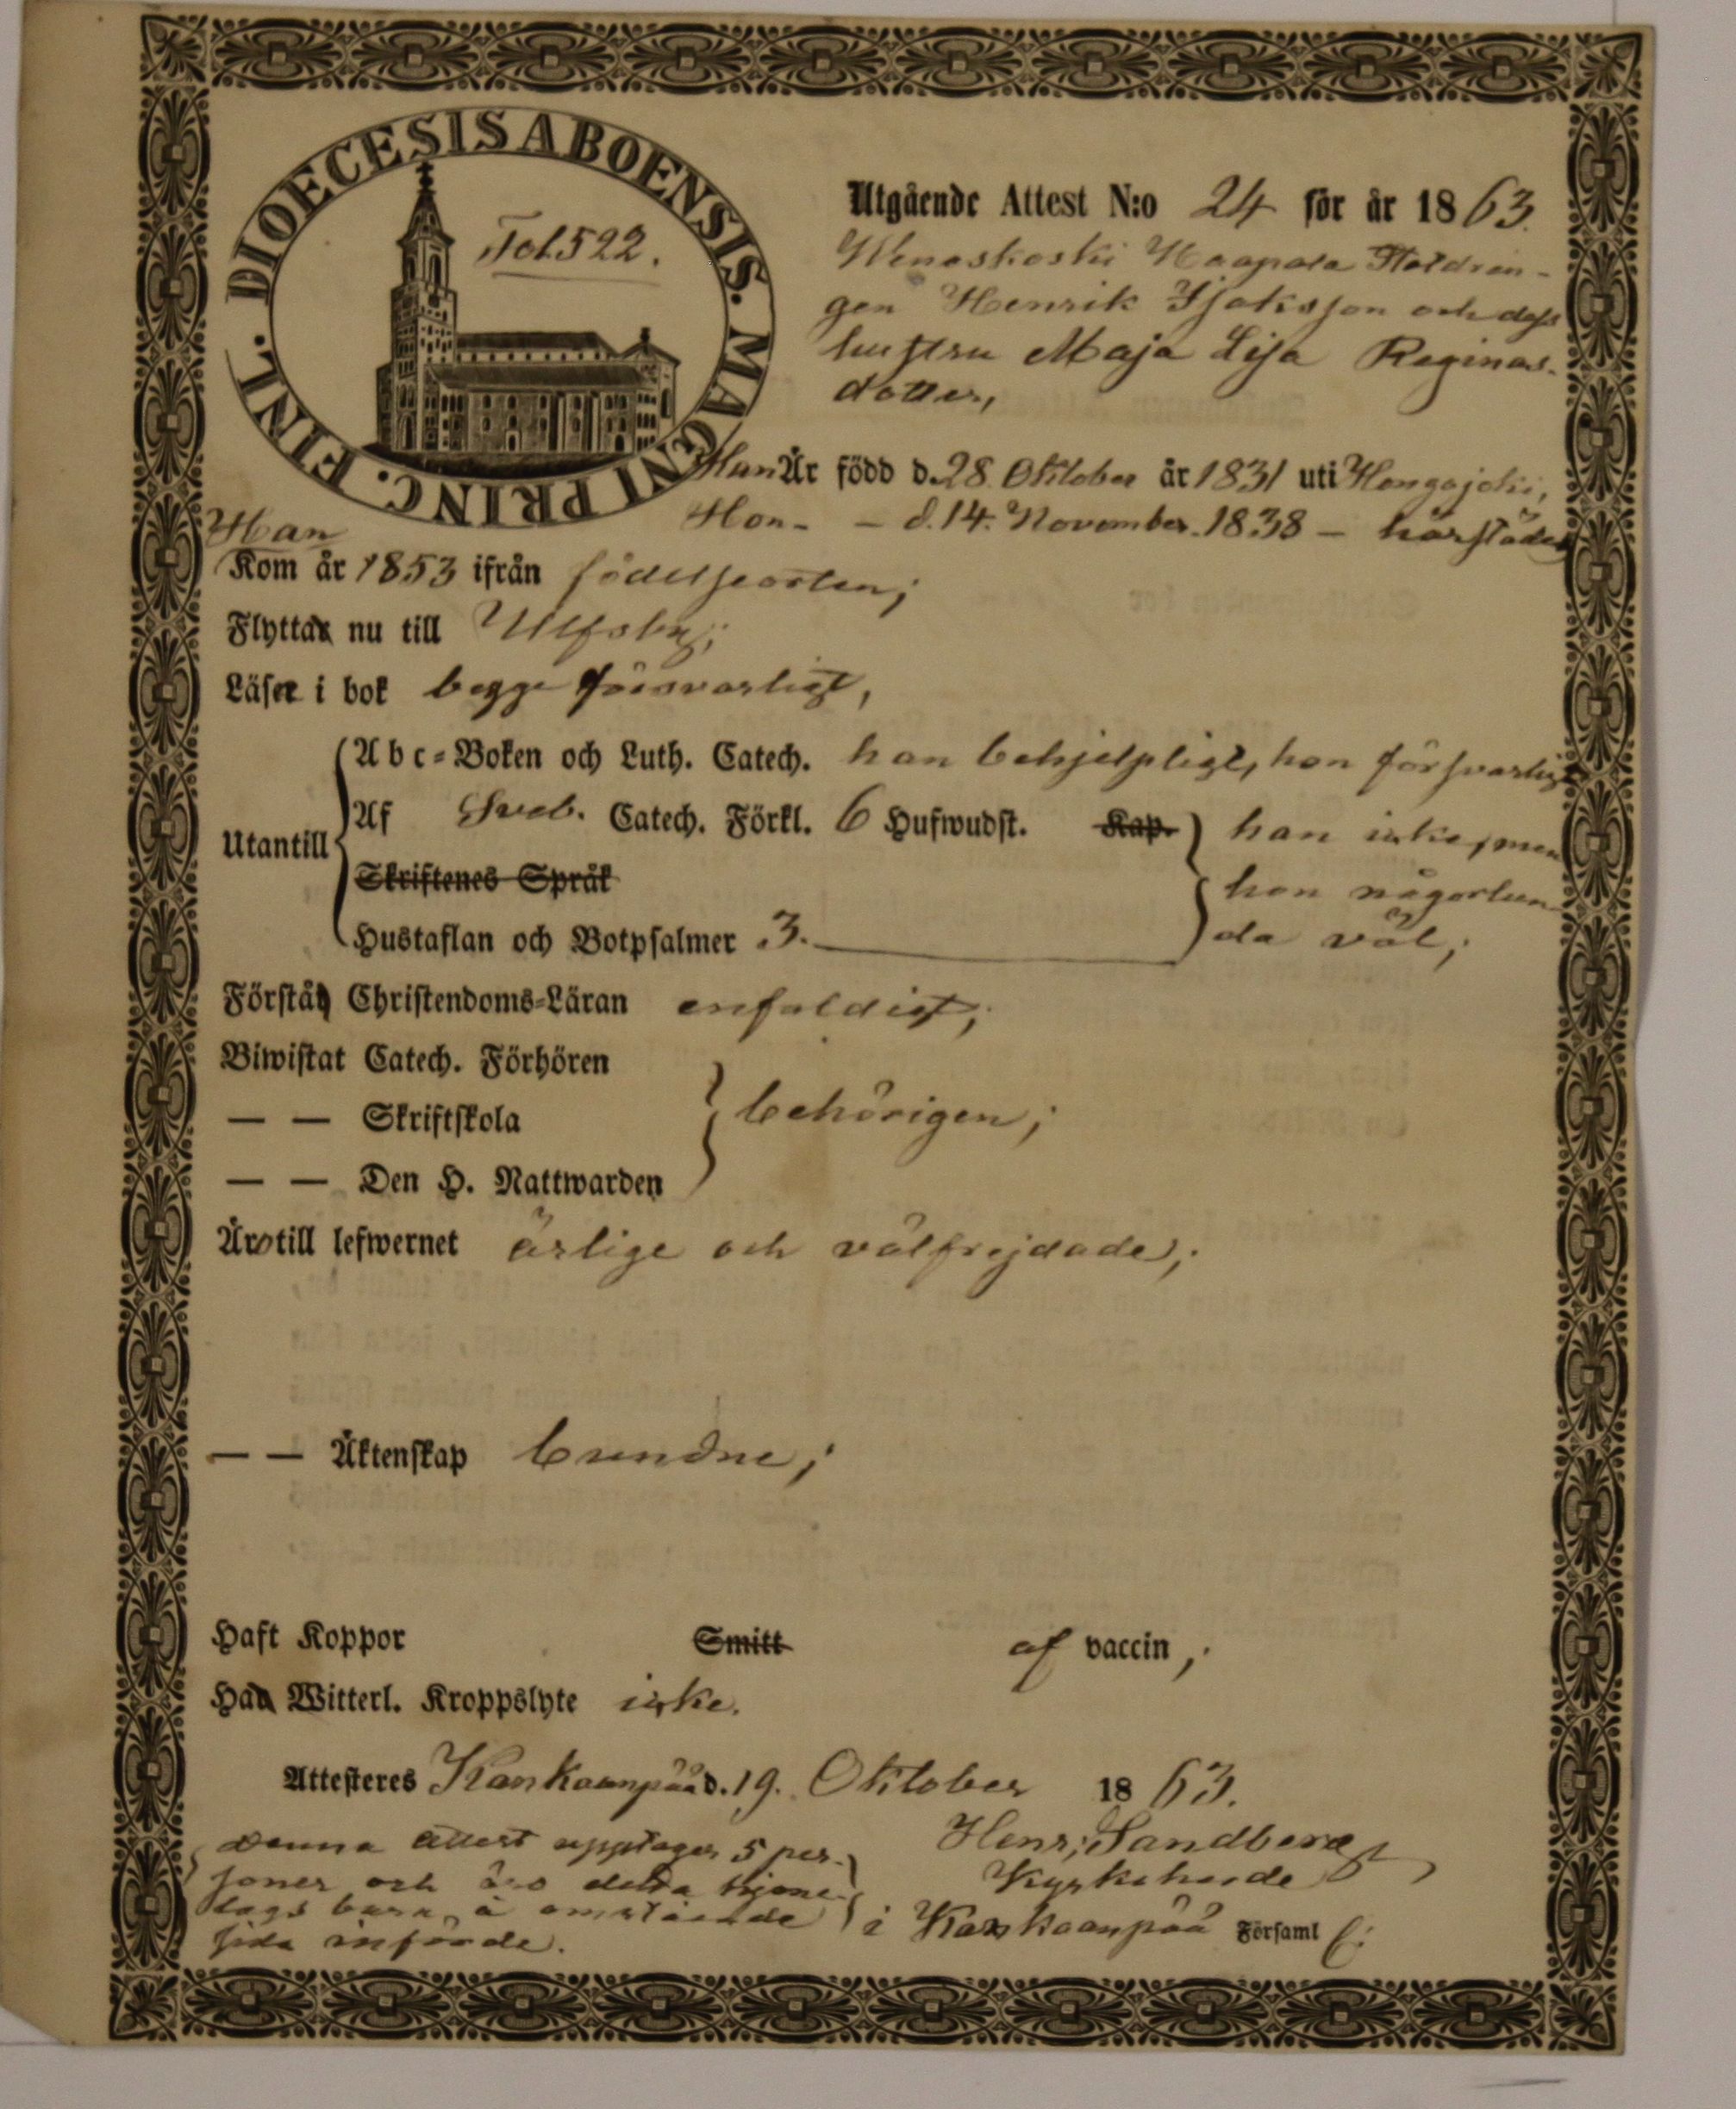 DIOECESIS ABOENSIS. MAGNI PRINC. FINL.
Fol 522.
Utgående Attest N:o 24 för år 1863.
Weneskoski Haapala Staldren-
gen Henrik Isaksson och dess
hustru Maja Lisa Reginas-
dotter,
Han Är född d. 28 Oktober år 1831 uti Hongojoki,
Hon - - d. 14. November 1838 - härstädes
Han
Kom år 1853 ifrån födelseorten;
Flytta nu till Ulfsby;
Läse i bok begge försvarligt,
Utantill
Abc-Boken och Luth. Catech. han behjelpligt, hon försvarligt
Af Sveb. Catech. Förkl. 6 Hufwudst. Kap. han icke, men
Skriftenes Språk hon någorlun-
Hustaflan och Botpsalmer 3. da väl;
Förstå Christendoms-Läran enfaldigt;
Biwistat Catech. Förhören
— — Skriftskola behörigen;
— — Den H. Nattwarden
Äro till lefwernet ärlige och välfrejdade;
— — Äktenskap bundne;
Haft Koppor Smitt af vaccin,;
Ha Witterl. Kroppslyte icke.
Attesteres Kankaanpää d. 19. Oktober 1863.
Henr; Sandberg
Kyrkoherde
i Kankaanpää Församl
Denna attest upptager 5 per-
soner och äro detta hjone-
lags barn å omstående
sida införde.